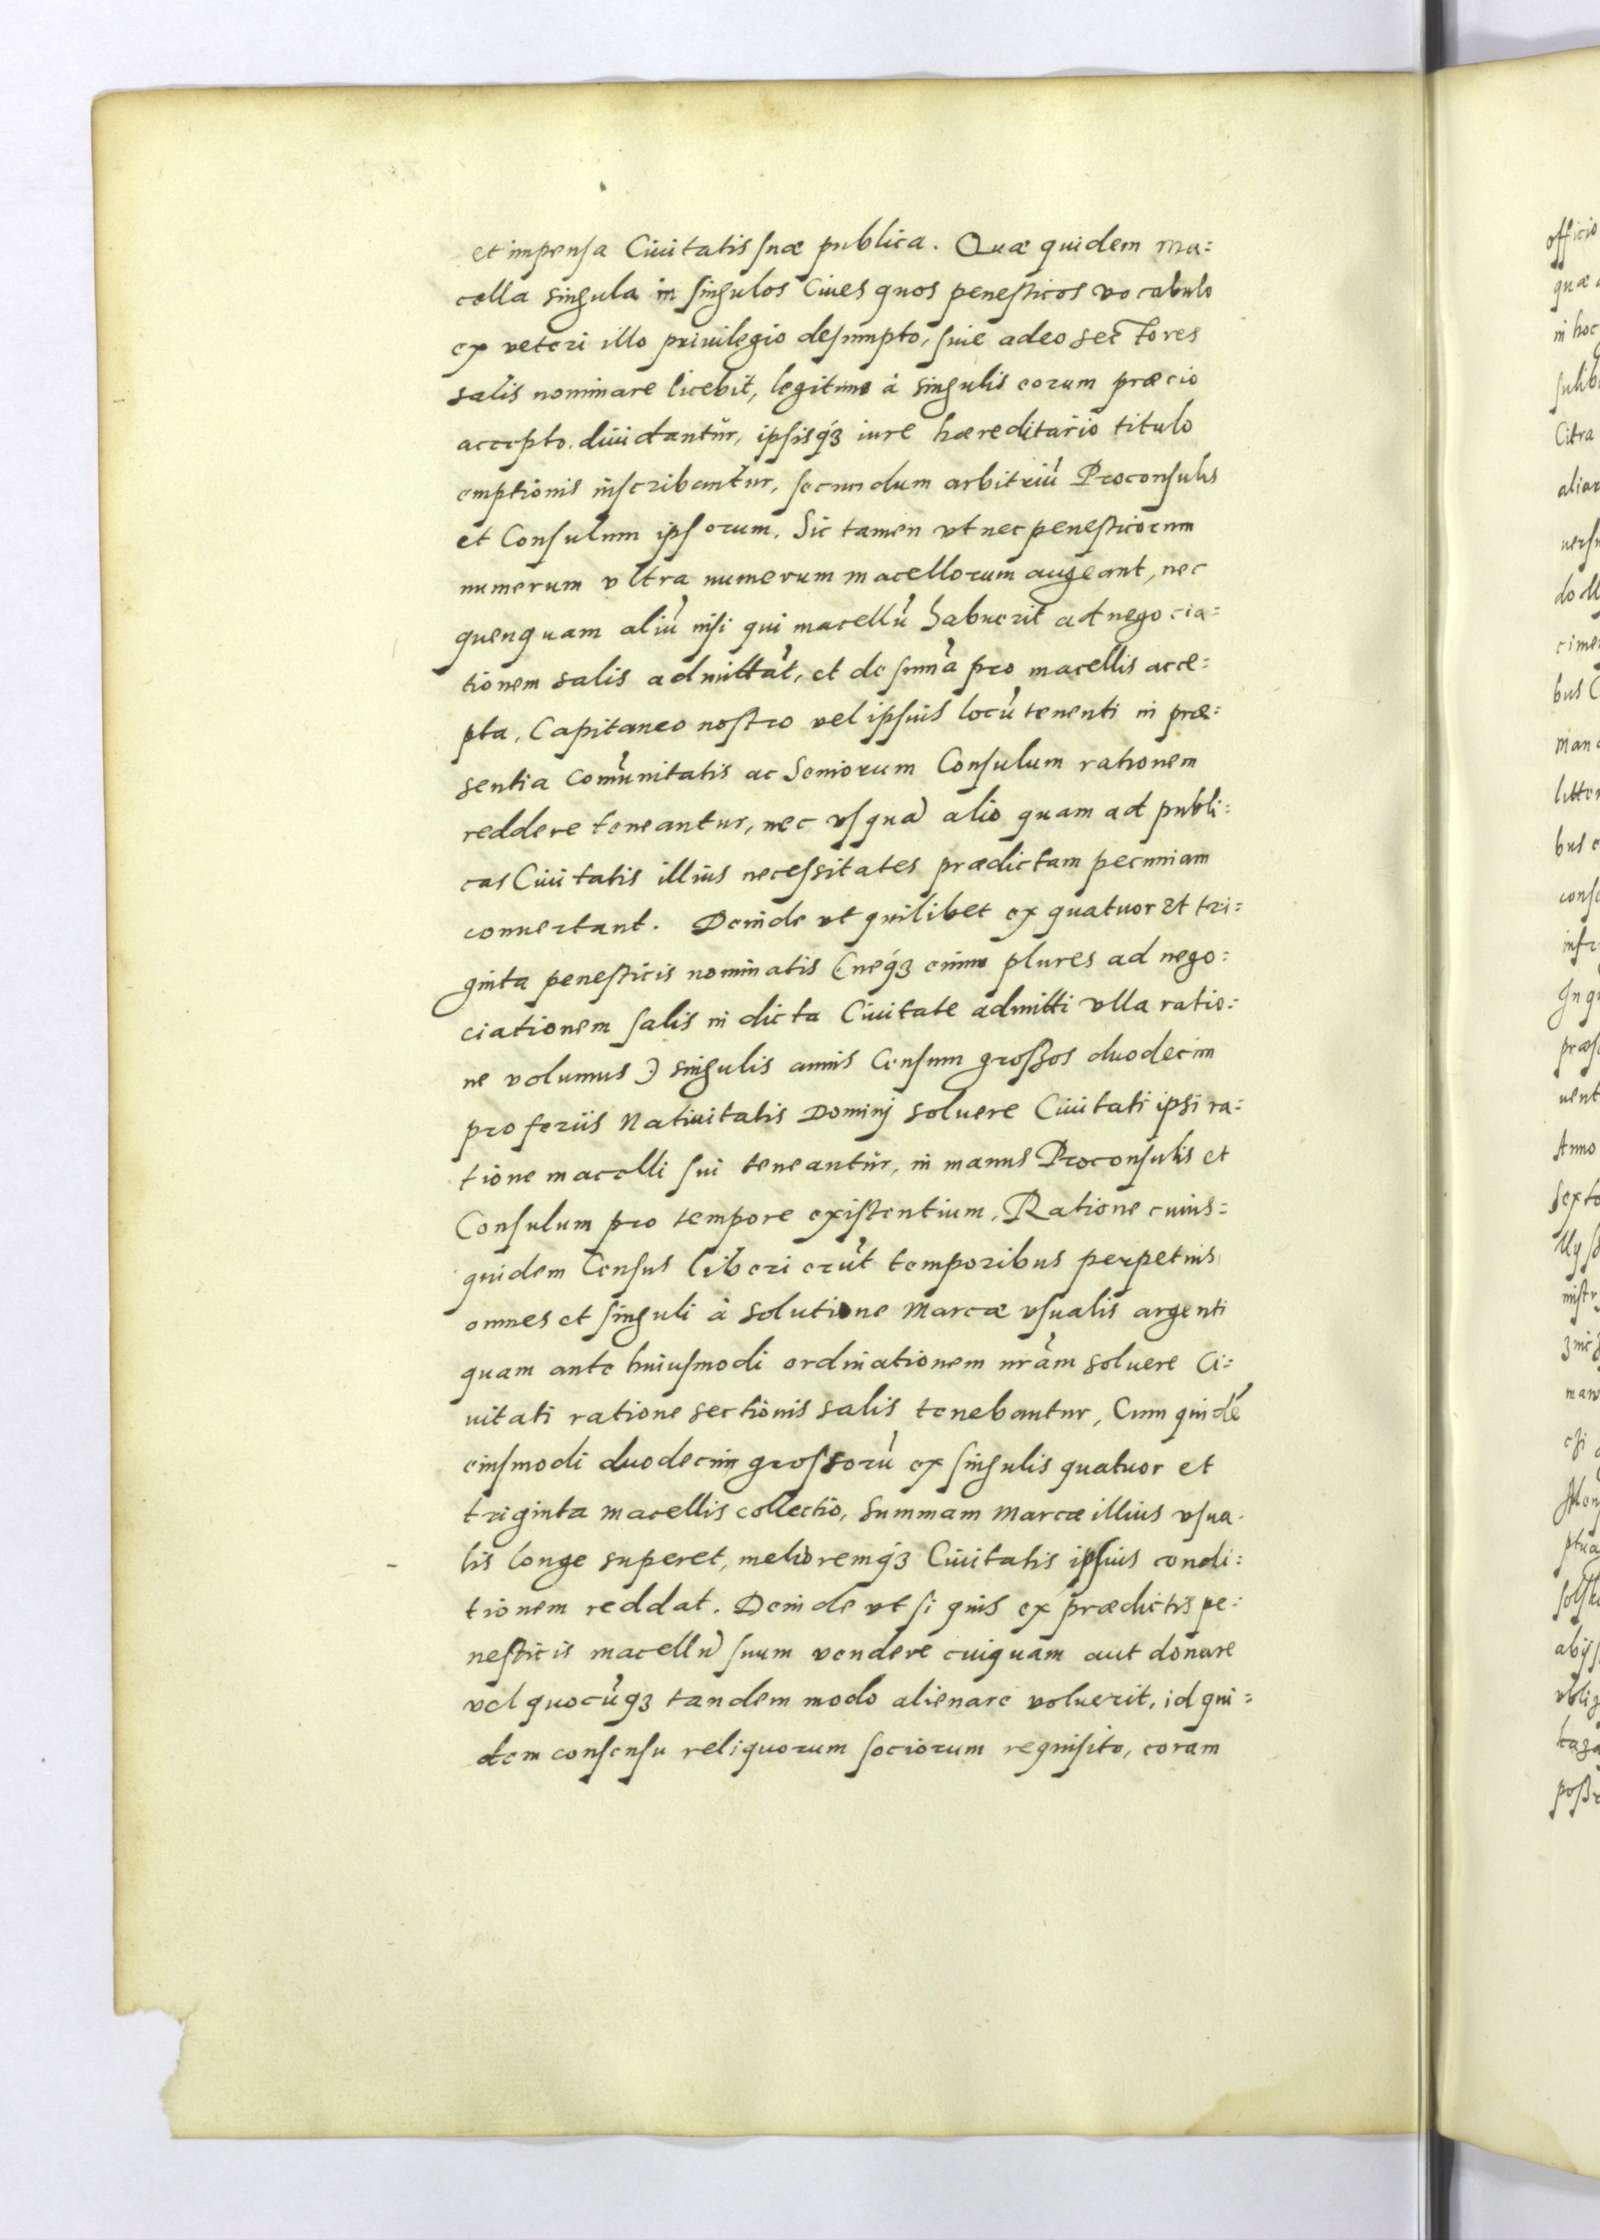 et impensa Ciuitatis suæ publica. Quæ quidem ma:
cella singula in singulos Ciues quos penesticos vocabulo
ex veteri illo priuilegio desumpto, siue adeo sectores
salis nominare licebit, legitimo à singulis eorum præcio
accepto diuidantur, ipsisq3 iure hæreditario titulo
emptionis inscribantur, secundum arbitriū Proconsulis
et Consulum ipsorum. Sic tamen vt nec penesticorum
numerum vltra numerum macellorum augeant, nec
quenquam aliū nisi qui macellū habuerit ad negocia:
tionem salis admittāt, et de sum̄a pro macellis acce:
pta, Capitaneo nostro vel ipsius locū tenenti in præ:
sentia Com̄unitatis ac Seniorum Consulum rationem
reddere teneantur, nec vsquā alio quam ad publi:
cas Ciuitatis illius necessitates prædictam pecuniam
conuertant. Deinde vt quilibet ex quatuor et tri:
ginta penesticis nominatis (neq3 enim plures ad nego:
ciationem salis in dicta Ciuitate admitti vlla ratio:
ne volumus) singulis annis Censum grossos duodecim
pro feriis Natiuitatis Dominj soluere Ciuitati ipsi ra:
tione macelli sui teneantur, in manus Proconsulis et
Consulum pro tempore existentium. Ratione cuius:
quidem Census liberi erūt temporibus perpetuis
omnes et singuli à solutione Marcæ vsualis argenti
quam ante huiusmodi ordinationem nrām soluere Ci:
uitati ratione sectionis salis tenebantur, Cum quidē
eiusmodi duodecim grossorū ex singulis quatuor et
triginta macellis collectio, summam Marcæ illius vsua.
lis longe superet, melioremq3 Ciuitatis ipsius condi:
tionem reddat. Deinde vt si quis ex prædictis pe:
nesticis macellū suum vendere cuiquam aut donare
vel quocūq3 tandem modo alienare voluerit, id qui:
dem consensu reliquorum sociorum requisito, coram
officio
quæ
in hoc
Citra
bus
Anno